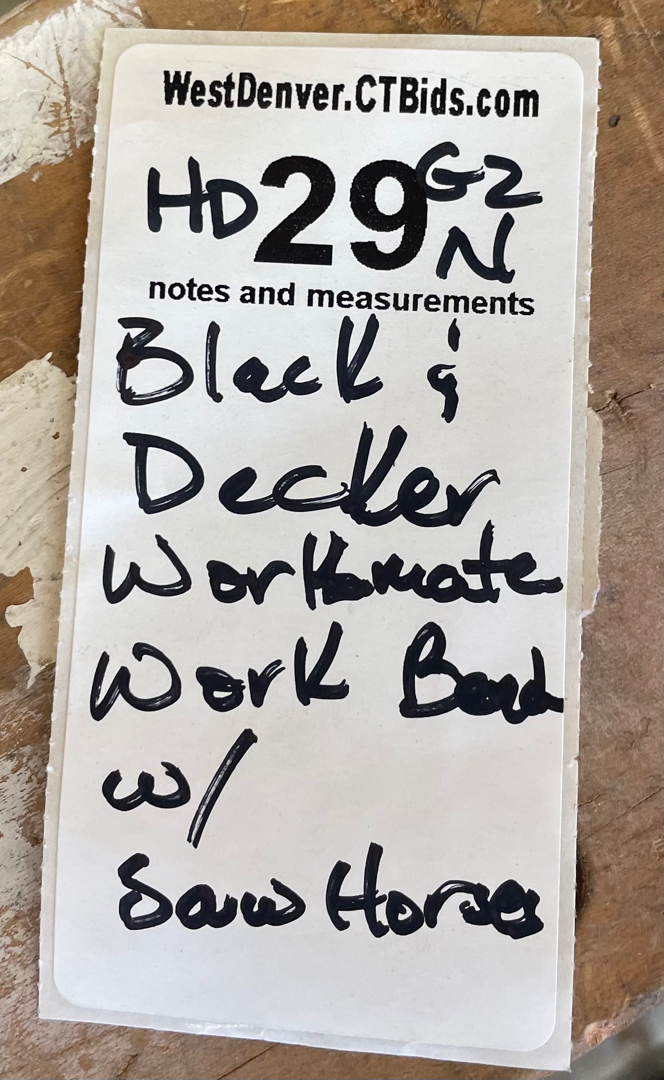 WestDenver.CTBids.com
HD 29 G2
N
notes and measurements
Black &
Decker
Workmate
Work Bench
w/
Saw Horses